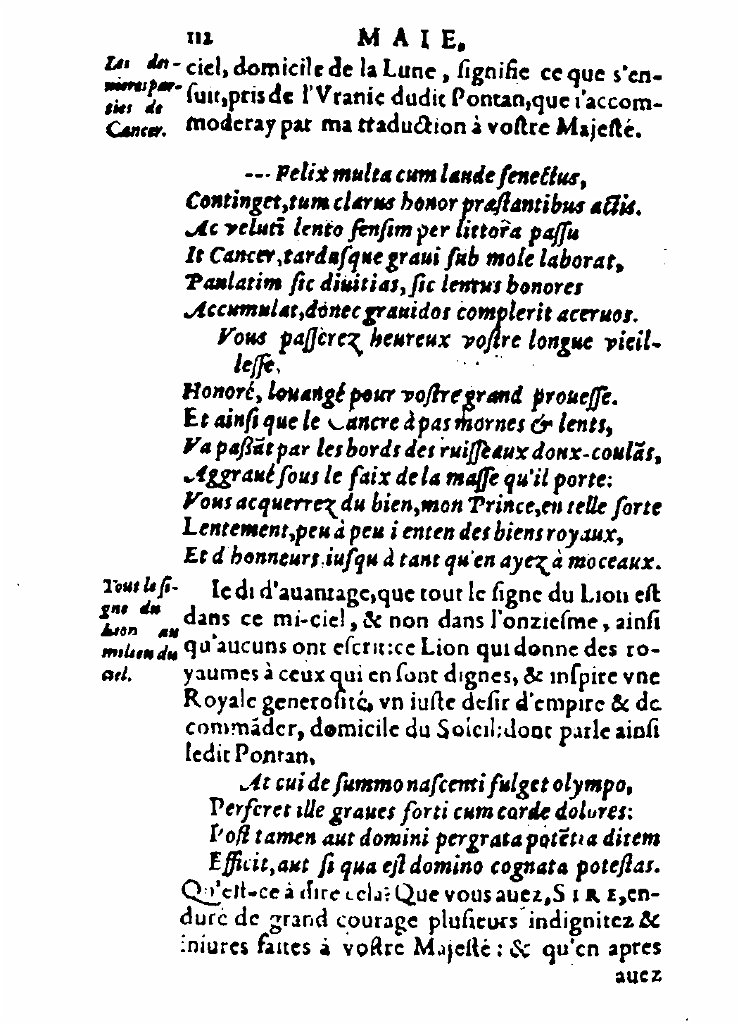 112 MAIE,
Les der-
nieres par-
ties de
Cancer.
ciel, domicile de la Lune, ſignifie ce que s'en-
ſuit, pris de l'Vranie dudit Pontan, que i'accom-
moderay par ma traduction à voſtre Majeſté.
--- Felix multa cum laude ſenectus,
Continget, tum clarus honor præſtantibus actis.
Ac veluti lento ſenſim per littora paſſu
It Cancer, tarduſque graui ſub mole laborat,
Paulatim ſic diuitias, ſic lentus honores
Accumulat, donec grauidos complerit aceruos.
Vous paſſerez heureux voſtre longue vieil-
leſſe,
Honoré, louangé pour voſtre grand proueſſe.
Et ainſi que le Cancre à pas mornes & lents,
Va paßãt par les bords des ruiſſeaux doux-coulãs,
Aggraué ſous le faix de la maſſe qu'il porte:
Vous acquerrez du bien, mon Prince, en telle ſorte
Lentement, peu à peu i'enten des biens royaux,
Et d'honneurs iuſqu'à tant qu'en ayez à moceaux.
Tout le ſi-
gne du
Lion au
milieu du
ciel.
Ie di d'auantage, que tout le ſigne du Lion eſt
dans ce mi-ciel, & non dans l'onzieſme, ainſi
qu'aucuns ont eſcrit: ce Lion qui donne des ro-
yaumes à ceux qui en ſont dignes, & inſpire vne
Royale generoſité, vn iuſte deſir d'empire & de
commãder, domicile du Soleil: dont parle ainſi
ledit Pontan,
At cui de ſummo naſcenti fulget olympo,
Perferet ille graues forti cum corde dolores:
Poſt tamen aut domini pergrata potẽtia ditem
Efficit, aut ſi qua eſt domino cognata poteſtas.
Qu'eſt-ce à dire cela? Que vous auez, SIRE, en-
duré de grand courage pluſieurs indignitez &
iniures faites à voſtre Majeſté: & qu'en apres
auez